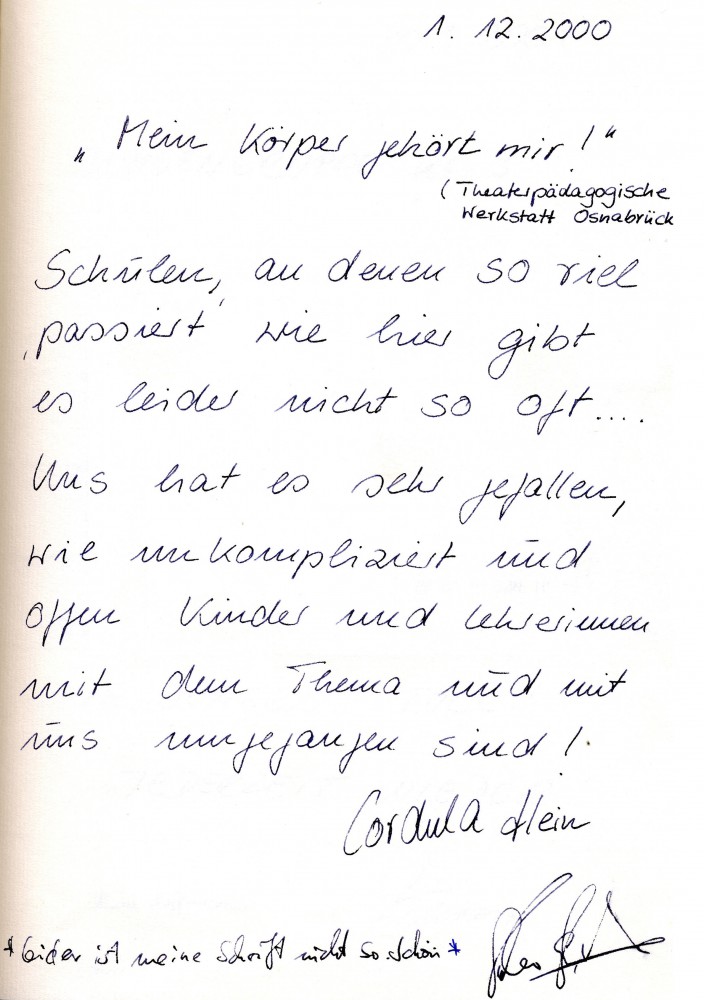 1. 12. 2000
„Mein Körper gehört mir!“
(Theaterpädagogische
Werkstatt Osnabrück
Schulen, an denen so viel
‚passiert‘ wie hier gibt
es leider nicht so oft....
Uns hat es sehr gefallen,
wie unkompliziert und
offen Kinder und Lehrerinnen
mit dem Thema und mit
uns umgegangen sind!
Cordula
*leider ist meine Schrift nicht so schön*